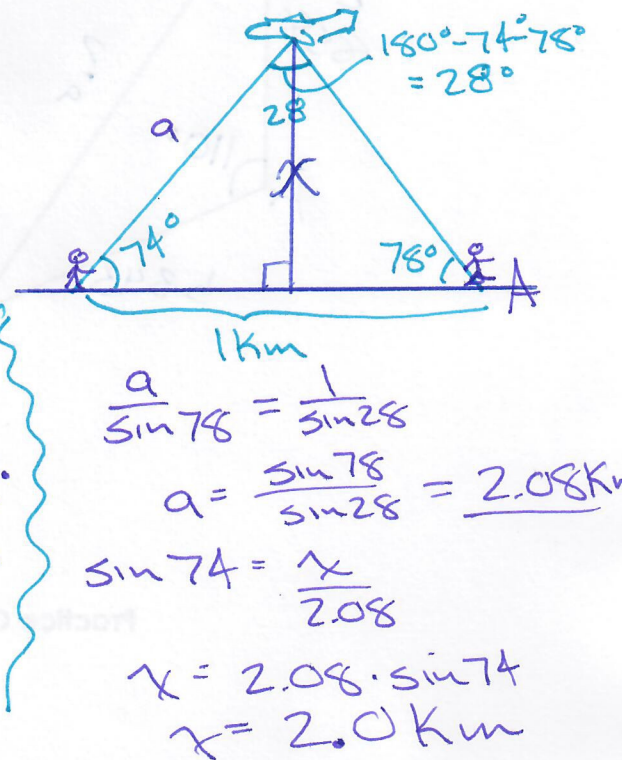 180°-74-78°
= 28°
28
a
x
74°
78°
A
1Km
a/sin78 = 1/sin28
a = sin78/sin28 = 2.08K
sin74 = x/2.08
x = 2.08·sin74
x = 2.0Km